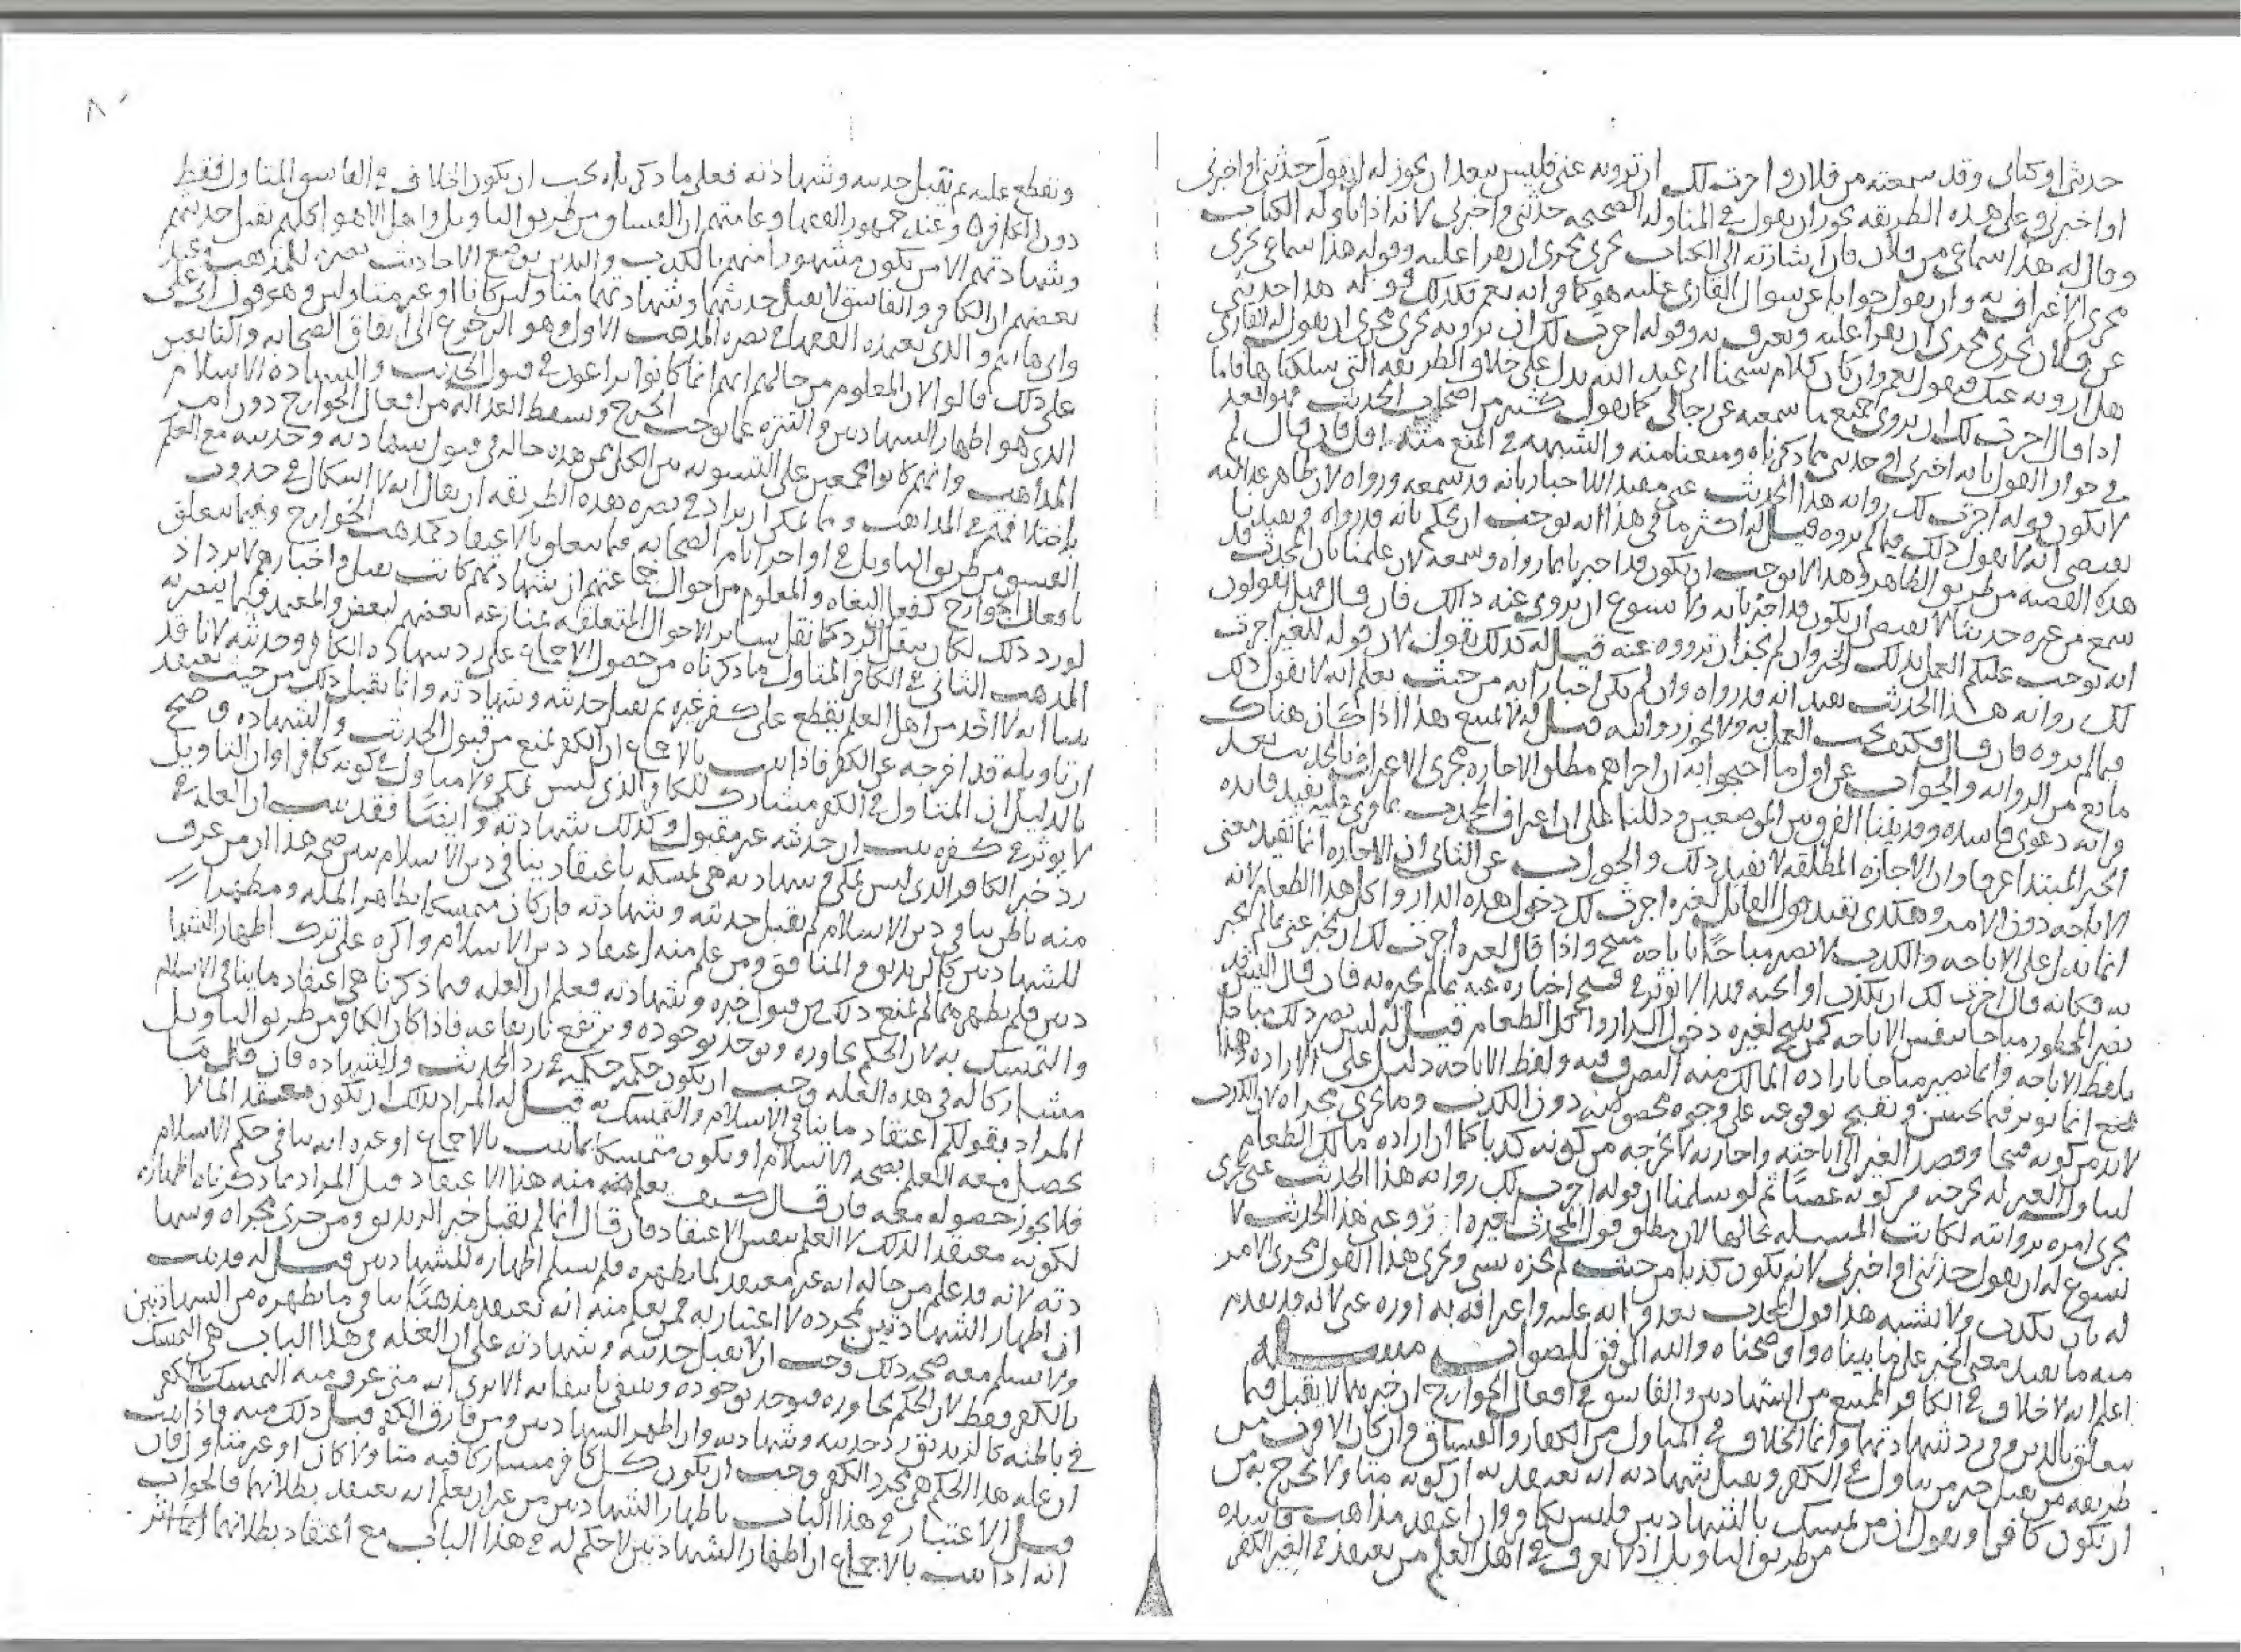 حدثني او كتابي وقد سمعته من فلان واجزت لك ان ترويه عني فليس يبعد ان يجوز له ان يقول حدثني او اخبرني
او اخبرني وعلى هذه الطريقه يجوز ان يقول في المناوله الصحيحه حدثني واخبرني لانه اذا ناوله الكتاب
وقال له هذا سماعي من فلان فان اشارته الى الكتاب تجري مجرى ان يقرا عليه وقوله هذا سماعي يجري
مجرى الاعتراف به وان يقول جوابا عن سوال القاري عليه هو كما قراته نعم فكذلك قوله هذا حديثي
عن فلان يجري مجرى ان يقرا عليه ويعترف به وقوله اجزت لك ان ترويه يجري مجرى ان يقول له القاري
هل ارويه عنك فيقول نعم وان كان كلام شيخنا ابي عبد الله يدل على خلاف الطريقه التي سلكناها فاما
اذا قال اجزت لك ان تروي جميع ما سمعته عن رجالي كما يقول كثير من اصحاب الحديث فهو ابعد
في جواز القول بانه اخبرني او حدثني مما ذكرناه ومنعنا منه والشبهه في المنع منه اقل فان قال لم
لا يكون قوله اجزت لك روايه هذا الحديث عني مفيد الاخبار بانه قد سمعه ورواه لان ظاهر عدالته
يقتضي انه لا يقول ذلك فيما لم يروه قيل له اكثر ما في هذا انه يوجب ان يحكم بانه قد رواه ويفيدنا
هذه القضيه من طريق الظاهر وهذا لا يوجب ان يكون قد اخبرنا بما رواه وسمعه لان علمنا بان المحدث قد
سمع من غيره حديثا لا يقتضي ان يكون قد اخبرنا به ولا يسوغ ان يروى عنه ذالك فان قال فهل تقولون
انه يوجب عليكم العمل بذلك الخبر وان لم يجز ان ترووه عنه قيل له كذلك نقول لان قوله للغير اجزت
لك روايه هذا الحديث يفيد انه قد رواه وان لم يكن اخبارا به من حيث يعلم انه لا يقول ذلك
فيما لم يروه فان قال فكيف يجب العمل به ولا يجوز روايته قيل له لا يمتنع هذا اذا كان هناك
مانع من الروايه والجواب عن اول ما احتجوا به ان اجراهم مطلق الاجازه مجرى الاعتراف بالحديث بعد
قراته دعوى فاسده وقد بينا الفرق بين الموضعين ودللنا على ان اعتراف المحدث بما قري عليه يفيد فايده
الخبر المبتدا عرفا وان الاجازه المطلقه لا تفيد ذلك والجواب عن الثاني ان الاجازه انما تفيد معنى
الاباحه دون الامر وهكذى يفيد قول القائل لغيره اجزت لك دخول هذه الدار واكل هذا الطعام لانه
انما يدل على الاباحه والكذب لا يصير مباحا باباحه مبيح واذا قال لغيره اجزت لك ان تخبر عني بما لم اخبر
به فكانه قال اجزت لك ان تكذب او ابحته فهذا لا يوثر في قبح اخباره عنه بما لم يخبره به فان قال اليس قد
يصير المحظور مباحا بنفس الاباحه كمن يبيح لغيره دخول الدار واكل الطعام قيل له ليس يصير ذلك مباحا
بلفظ الاباحه وانما يصير مباحا باراده المالك منه التصرف فيه ولفظ الاباحه دليل على الاراده وهذا
الصنع انما يوثر فيما يحسن ويقبح لوقوعه على وجوه مخصوصه دون الكذب وما يجري مجراه لان الكذب
لا بد من كونه قبيحا وقصد الغير الى اباحته واجازته لا يخرجه من كونه كذبا كما ان اراده مالك الطعام
لتناول الغير له يخرجه من كونه غصبا ثم لو سلمنا ان قوله اجزت لك روايه هذا الحديث عني يجري
مجرى امره بروايته لكانت المسله بحالها لان مطلق قول المحدث لغيره ارو عني هذا الحديث لا
يسوغ له ان يقول حدثني او اخبرني لانه يكون كذبا من حيث لم يخبره بشي ويجري هذا القول مجرى الامر
له بان يكذب ولا يشبه هذا قول المحدث بعد قراته عليه واعترافه به اروه عني لانه قد تقدم
منه ما يفيد معنى الخبر على ما بيناه واوضحناه والله الموفق للصواب مسله
اعلم انه لا خلاف في الكافر الممتنع من الشهادتين والفاسق في افعال الجوارح ان خبرهما لا يقبل فيما
يتعلق بالدين وفي رد شهادتهما وانما الخلاف في المتاول من الكفار والفساق وان كان الاوفق من
طريقه من يقبل خبر من يتاول في الكفر ويقبل شهادته انه يعتقد به ان كونه متاولا يخرج به من
ان يكون كافرا ويقول ان من تمسك بالشهادتين فليس بكافر وان اعتقد مذاهب فاسده
من طريق التاويل اذ لا نعرف في اهل العلم من يعتقد في الغير الكفر
ويقطع عليه ثم يقبل حديثه وشهادته فعلى ما ذكرناه يجب ان يكون الخلاف في الفاسق المتاول فقط
دون الكافر وعند جمهور الفقها وعامتهم ان الفساق من طريق التاويل واهل الاهوا كلهم يقبل حديثهم
وشهادتهم الا من يكون مشهورا منهم بالكذب والتدين بوضع الاحاديث نصره للمذهب وعند
بعضهم ان الكافر والفاسق لا يقبل حديثهما وشهادتهما متاولين كانا او غير متاولين وهو قول ابي علي
وابي هاشم والذي يعتمده الفقها في نصره المذهب الاول هو الرجوع الى اتفاق الصحابه والتابعين
على ذلك قالوا لان المعلوم من حالهم انهم انما كانوا يراعون في قبول الحديث والشهاده الاسلام
الذي هو اظهار الشهادتين والتنزه عما يوجب الجرح ويسقط العداله من افعال الجوارح دون امر
المذاهب وانهم كانوا مجمعين على التسويه بين الكل ممن هذه حاله في قبول شهادته وحديثه مع العلم
باختلافهم في المذاهب ومما يمكن ان يزاد في نصره هذه الطريقه ان يقال انه لا اشكال في حدوث
الفسق من طريق التاويل في اواخر ايام الصحابه فيما يتعلق بالاعتقاد كمذهب الخوارج وفيما يتعلق
بافعال الجوارح كفعل البغاه والمعلوم من احوال جماعتهم ان شهادتهم كانت تقبل واخبارهم لا ترد اذ
لو رد ذلك لكان ينقل الرد كما نقل ساير الاحوال المتعلقه بمنازعه بعضهم لبعض والمعتمد فيما ينصر به
المذهب الثاني في الكافر المتاول ما ذكرناه من حصول الاجماع على رد شهاده الكافر وحديثه لانا قد
بينا انه لا احد من اهل العلم يقطع على كفر غيره ثم يقبل حديثه وشهادته وانما يقبل ذلك من حيث يعتقد
ان تاويله قد اخرجه عن الكفر فاذا ثبت بالاجماع ان الكفر يمنع من قبول الحديث والشهاده وصح
بالدليل ان المتاول في الكفر مشارك للكافر الذي ليس بملي ولا متاول في كونه كافرا وان التاويل
لا يوثر في كفره ثبت ان حديثه غير مقبول وكذلك شهادته وايضا فقد ثبت ان العله في
رد خبر الكافر الذي ليس بملي وشهادته هي تمسكه باعتقاد ينافي دين الاسلام يبين صحه هذا ان من عرف
منه باطن ينافي دين الاسلام لم يقبل حديثه وشهادته وان كان متمسكا بظاهر المله ومظهرا
للشهادتين كالزنديق والمنافق ومن علم منه اعتقاد دين الاسلام واكره على ترك اظهار الشهادتين
فلم يظهرهما لم يمنع ذلك من قبول خبره وشهادته فعلم ان العله فيما ذكرنا هي اعتقاد ما ينافي الاسلام
والتمسك به لان الحكم يجاوره ويوجد بوجوده ويرتفع بارتفاعه فاذا كان الكافر من طريق التاويل
مشاركا له في هذه العله وجب ان يكون حكمه حكمه في رد الحديث والشهاده فان قال ما
المراد بقولكم اعتقاد ما ينافي الاسلام والتمسك به قيل له المراد بذلك ان يكون معتقدا لما لا
يحصل معه العلم بصحه الاسلام او يكون متمسكا بما ثبت بالاجماع او غيره انه ينافي حكم الاسلام
فلا يجوز حصوله معه فان قال كيف يعلم منه هذا الاعتقاد قيل المراد بما ذكرناه اظهاره
لكونه معتقدا لذلك لا العلم بنفس الاعتقاد فان قال انما لم يقبل خبر الزنديق ومن جرى مجراه وشها
دته لانه قد علم من حاله انه غير معتقد لما يظهره فلم يسلم اظهاره للشهادتين قيل له قد ثبت
ان اظهار الشهادتين بمجرده لا اعتبار به ممن يعلم منه انه يعتقد مذهبا ينافي ما يظهره من الشهادتين
ولا يسلم معه صحه ذلك وجب ان لا يقبل حديثه وشهادته على ان العله في هذا الباب هي التمسك
بالكفر فقط لان الحكم يجاوره فيوجد بوجوده وينتفي بانتفايه الا ترى انه متى عرف منه التمسك بالكفر
في باطنه كالزنديق رد حديثه وشهادته وان اظهر الشهادتين ومن فارق الكفر قبل ذلك منه فاذا ثبت
ان عله هذا الحكم هي مجرد الكفر وجب ان يكون كل كافر مشاركا فيه متاولا كان او غير متاول فان
قيل الاعتبار في هذا الباب باظهار الشهادتين من غير ان يعلم انه يعتقد بطلانهما فالجواب
انه اذا ثبت بالاجماع ان اظهار الشهادتين لا حكم له في هذا الباب مع اعتقاد بطلانهما